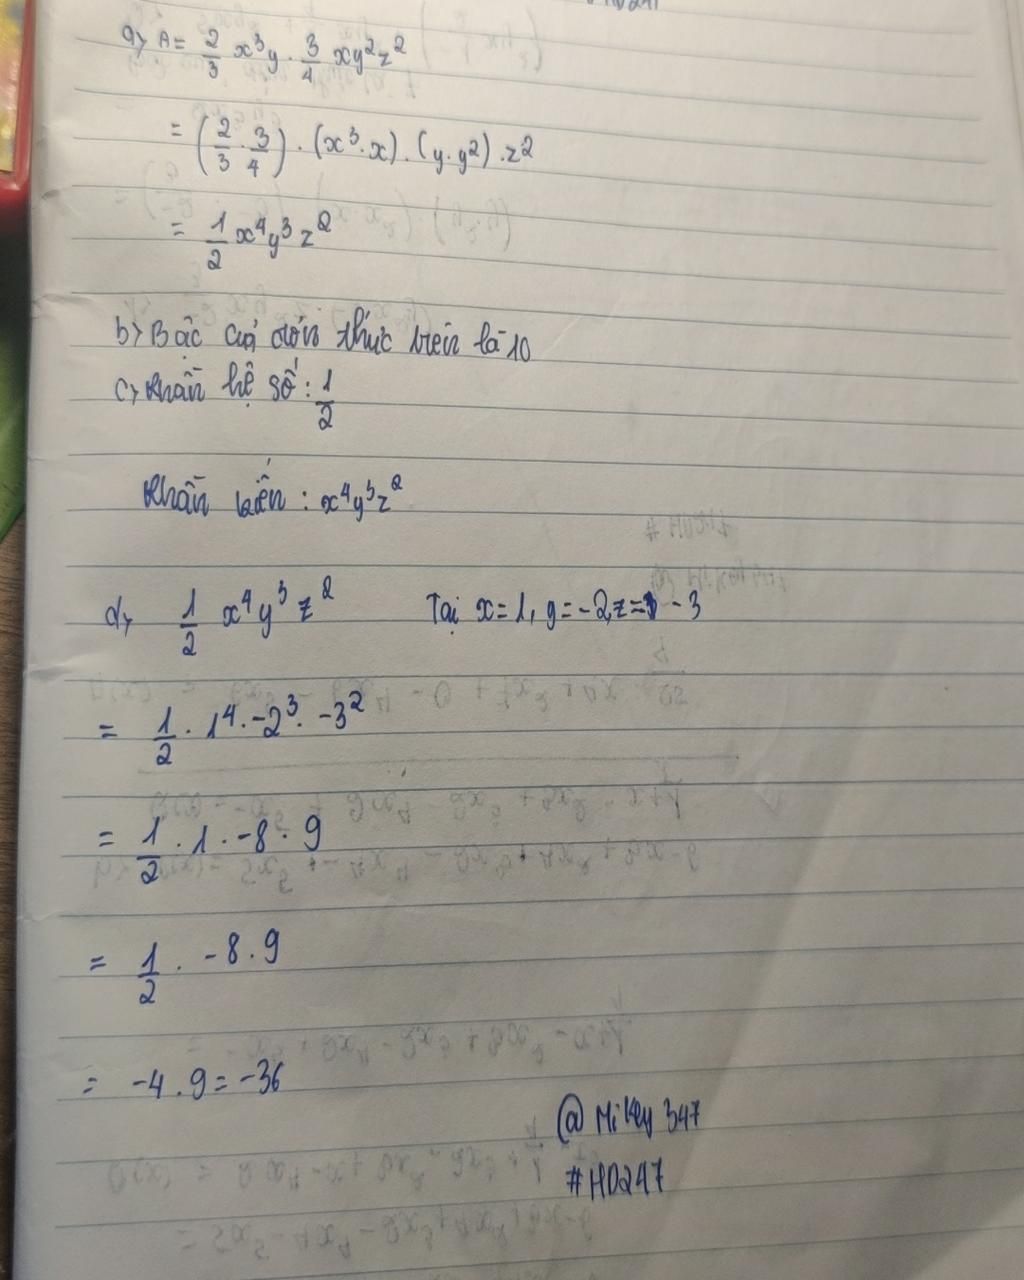 a) A = 2/3 x³y · 3/4 xy²z²
= (2/3 · 3/4) · (x³·x) · (y·y²) · z²
= 1/2 x⁴y³z²
b) Bậc của đơn thức trên là 10
c) Phần hệ số: 1/2
Phần biến: x⁴y³z²
d) 1/2 x⁴y³z² Tại x=1, y=-2, z= -3
= 1/2 · 1⁴ · -2³ · -3²
= 1/2 · 1 · -8 · 9
= 1/2 · -8 · 9
= -4 . 9 = -36
@ Mikey 347
#HD247